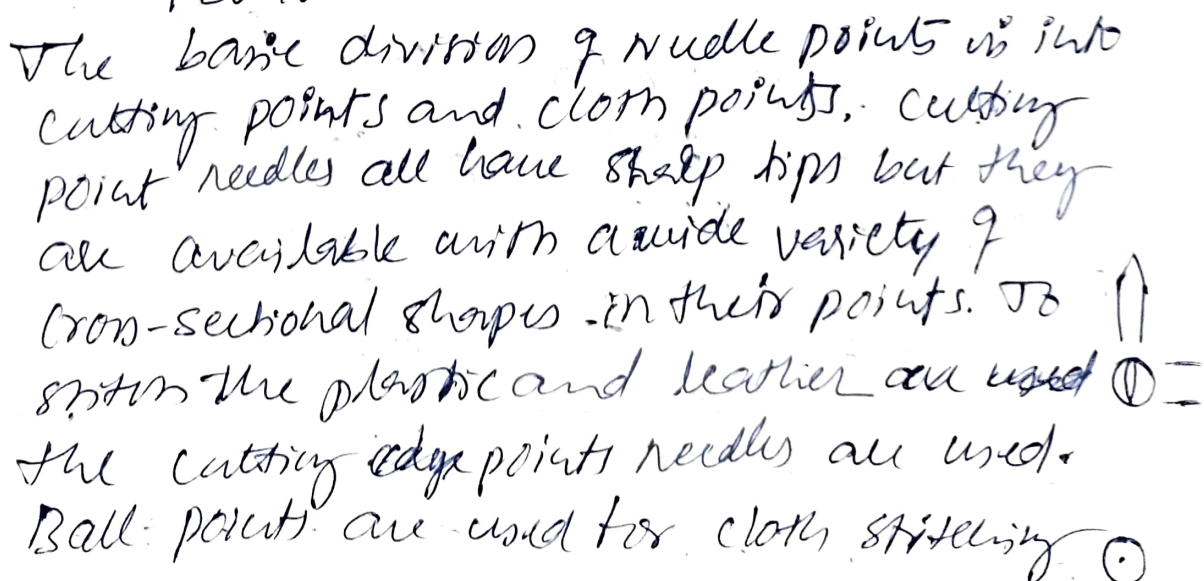 The basic division of needle points is into
cutting points and cloth points. Cutting
point needles all have sharp tips but they
are available with a wide variety of
cross-sectional shapes in their points. To
stitch the plastic and leather are used
the cutting edge points needles are used.
Ball points are used for cloth stitching